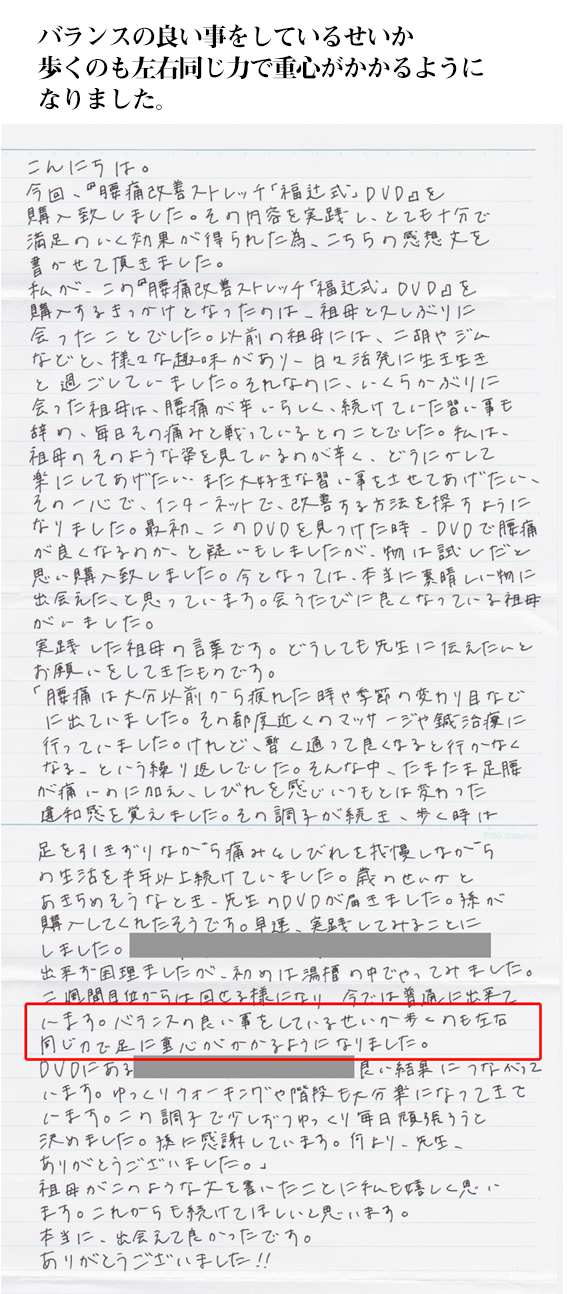 バランスの良い事をしているせいか
歩くのも左右同じ力で重心がかかるように
なりました。
こんにちは。
今回、『腰痛改善ストレッチ「福辻式」DVD』を
購入致しました。その内容を実践し、とても十分で
満足のいく効果が得られた為、こちらの感想文を
書かせて頂きました。
私が、この『腰痛改善ストレッチ「福辻式」DVD』を
購入するきっかけとなったのは、祖母と久しぶりに
会ったことでした。以前の祖母には、二胡やジム
などと、様々な趣味があり、日々活発に生き生き
と過ごしていました。それなのに、いくらかぶりに
会った祖母は、腰痛が辛いらしく、続けていた習い事も
辞め、毎日その痛みと戦っているとのことでした。私は、
祖母のそのような姿を見ているのが辛く、どうにかして
楽にしてあげたい、また大好きな習い事をさせてあげたい、
その一心で、インターネットで、改善する方法を探すように
なりました。最初、このDVDを見つけた時、DVDで腰痛
が良くなるのか、と疑いもしましたが、物は試しだと
思い購入致しました。今となっては、本当に素晴しい物に
出会えた、と思っています。会うたびに良くなっている祖母
がいました。
実践した祖母の言葉です。どうしても先生に伝えたいと
お願いをしてきたものです。
「腰痛は大分以前から疲れた時や季節の変わり目など
に出ていました。その都度近くのマッサージや鍼治療に
行っていました。けれど、暫く通って良くなると行かなく
なる、という繰り返しでした。そんな中、たまたま足腰
が痛いのに加え、しびれを感じいつもとは変わった
違和感を覚えました。その調子が続き、歩く時は
足を引きずりながら痛みとしびれを我慢しながら
の生活を半年以上続けていました。歳のせいかと
あきらめそうなとき、先生のDVDが届きました。孫が
購入してくれたそうです。早速、実践してみることに
しました。
出来ず困りましたが、初めは湯槽の中でやってみました。
二週間目位からは回せる様になり、今では普通に出来て
います。バランスの良い事をしているせいか歩くのも左右
同じ力で足に重心がかかるようになりました。
DVDにある 良い結果につながって
います。ゆっくりウォーキングや階段も大分楽になってきて
います。この調子で少しずつゆっくり毎日頑張ろうと
決めました。孫に感謝しています。何より、先生、
ありがとうございました。」
祖母がこのような文を書いたことに私も嬉しく思い
ます。これからも続けてほしいと思います。
本当に、出会えて良かったです。
ありがとうございました!!